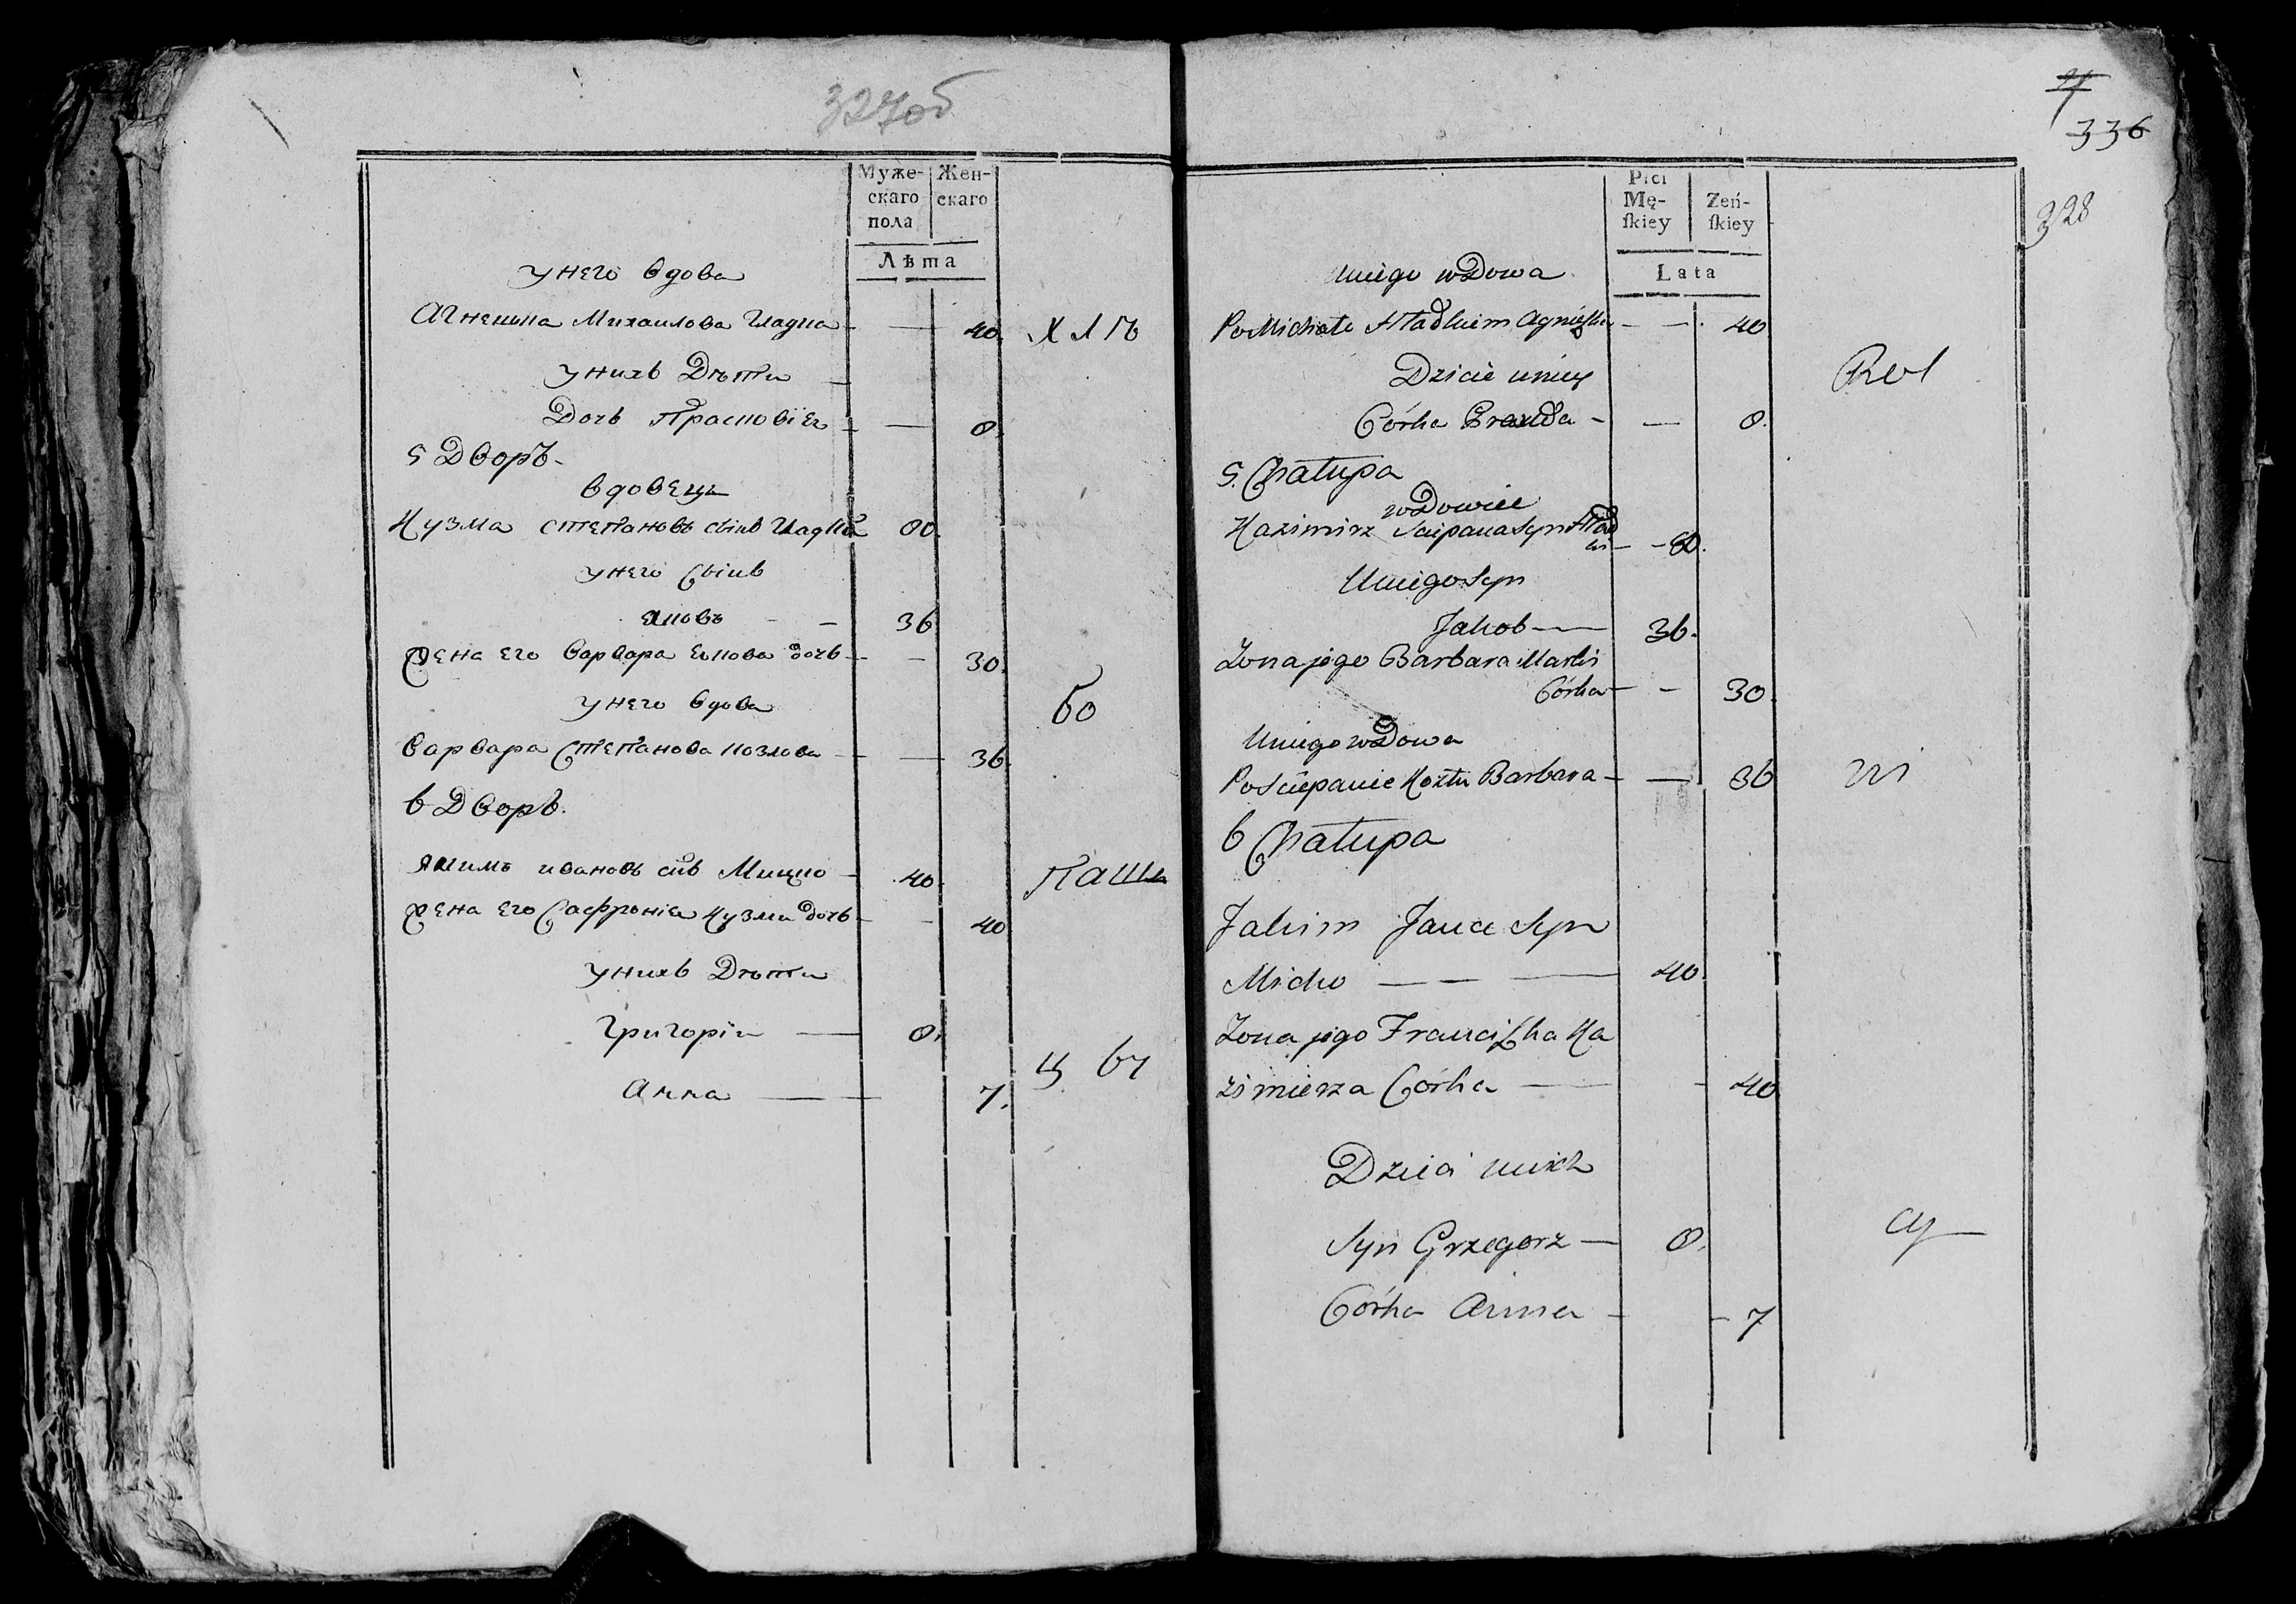 327об
Муже-
скаго
пола
Жен-
скаго
Лѣта
у него вдова
Агнешка Михаилова Гладка — 40.
у нихъ Дѣти
Дочь Прасковія — 0.
5 Дворъ
вдовецъ
Кузма Степановъ сынъ 80.
у него Сынъ
Яковъ — 36
Жена его Варвара дочь — 30.
у него вдова
Варвара Степанова Козлова — 36.
6 Дворъ.
Якимъ Ивановъ снъ Мицко — 40.
Жена его Кузми дочь — 40
у нихъ Дѣти
Григорій — 0.
Анна — 7.
ХЛѢ
бо
паш
ц бы
336
328
Płci
Mę-
ſkiey
Żeń-
ſkiey
Lata
U niego wdowa
Po Michale Hładkim Agnieszka — 40
Dzieci u niey
Córka — 0.
5. Chałupa
wdowiec
Kazimierz Sciepana Syn Hład
ki — 80.
U niego Syn
Jakob — 36.
Żona jego Barbara
Córka — 30.
U niego wdowa
Po Sciepanie Kozłu Barbara — 36
6 Chałupa
Jakim Jana Syn
Micko — 40.
Żona jego Franciszka Ka
zimierza Córka — 40
Dzieci u nich
Syn Grzegorz — 0.
Córka Anna — 7
Rol
ni
cy